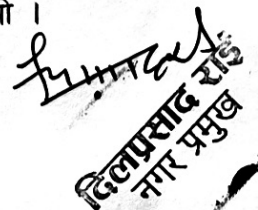 । 
दिलप्रसाद राई
नगर प्रमुख